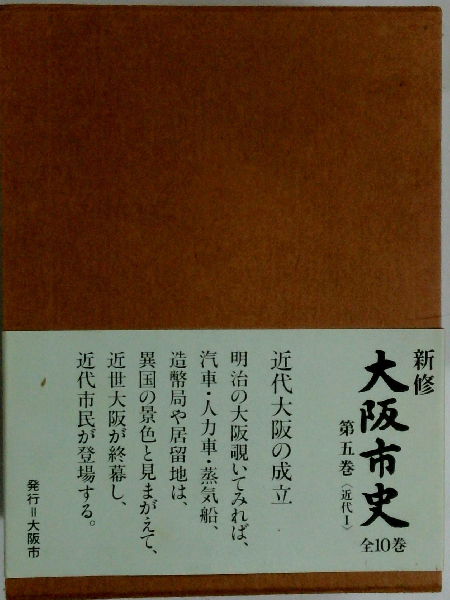 新修
大阪市史
第五巻〈近代Ⅰ〉
全10巻
近代大阪の成立
明治の大阪覗いてみれば、
汽車・人力車・蒸気船、
造幣局や居留地は、
異国の景色と見まがえて、
近世大阪が終幕し、
近代市民が登場する。
発行＝大阪市